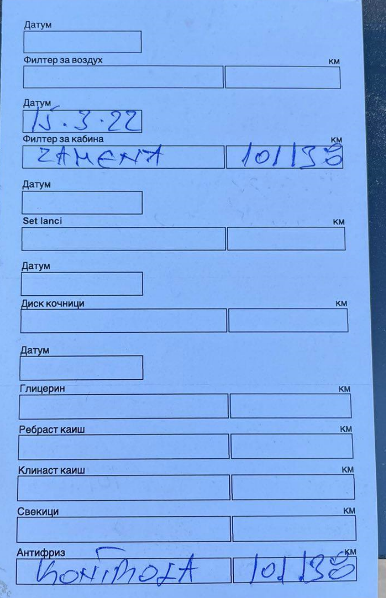 Датум
Филтер за воздух км
Датум
15.3.22
Филтер за кабина км
ZAMENA 101138
Датум
Set lanci км
Датум
Диск кочници км
Датум
Глицерин км
Ребраст каиш км
Клинаст каиш км
Свеќици км
Антифриз км
KONTROLA 101138